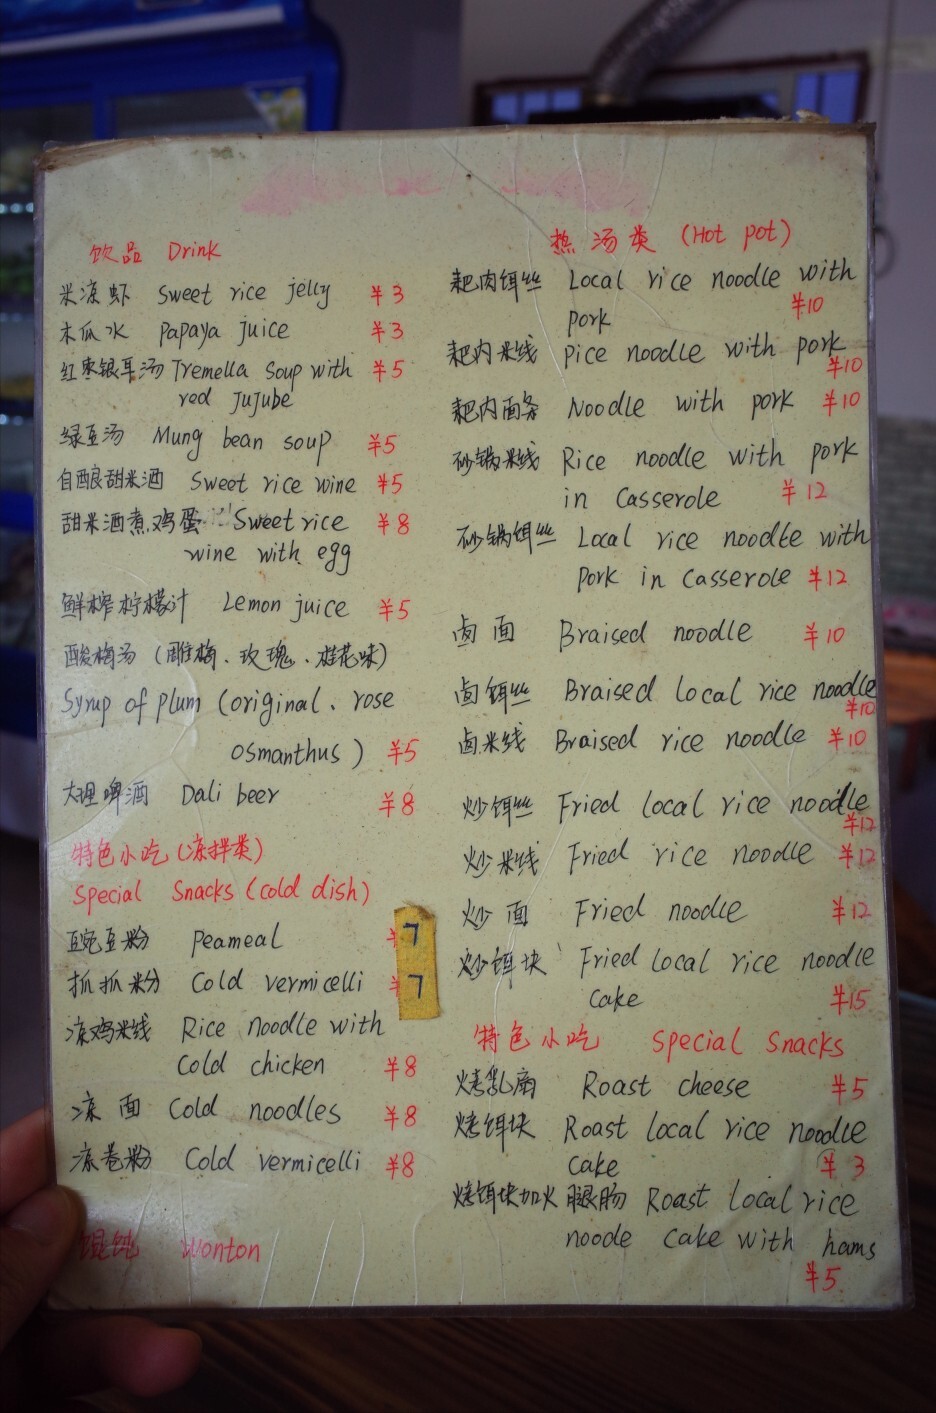 饮品 Drink
米凉虾 Sweet rice jelly ¥3
木瓜水 papaya juice ¥3
红枣银耳汤 Tremella Soup with ¥5
red Jujube
绿豆汤 Mung bean soup ¥5
自酿甜米酒 Sweet rice wine ¥5
甜米酒煮鸡蛋 Sweet rice ¥8
wine with egg
鲜榨柠檬汁 Lemon juice ¥5
酸梅汤（雕梅、玫瑰、桂花味）
Syrup of plum (original、rose
osmanthus) ¥5
大理啤酒 Dali beer ¥8
特色小吃（凉拌类）
Special Snacks (cold dish)
豌豆粉 peameal ¥7
抓抓粉 Cold vermicelli ¥7
凉鸡米线 Rice noodle with
Cold chicken ¥8
凉面 Cold noodles ¥8
凉卷粉 Cold vermicelli ¥8
馄饨 Wonton
热汤类 (Hot pot)
耙肉饵丝 Local rice noodle with
pork ¥10
耙肉米线 pice noodle with pork
¥10
耙肉面条 Noodle with pork ¥10
砂锅米线 Rice noodle with pork
in Casserole ¥12
砂锅饵丝 Local rice noodle with
pork in casserole ¥12
卤面 Braised noodle ¥10
卤饵丝 Braised local rice noodle
¥10
卤米线 Braised rice noodle ¥10
炒饵丝 Fried local rice noodle
¥12
炒米线 Fried rice noodle ¥12
炒面 Fried noodle ¥12
炒饵块 Fried local rice noodle
cake ¥15
特色小吃 Special Snacks
烤乳扇 Roast cheese ¥5
烤饵块 Roast local rice noodle
cake ¥3
烤饵块加火腿肠 Roast local rice
noode cake with hams
¥5